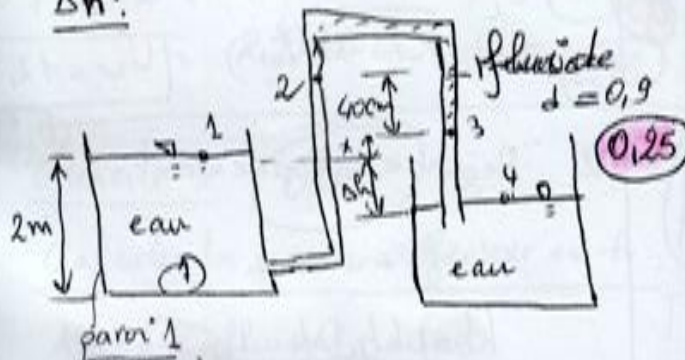 Δh:
2
40cm
fluide
d = 0,9
3
0,25
1
x
Δh
4
2m
eau
1
eau
paroi 1